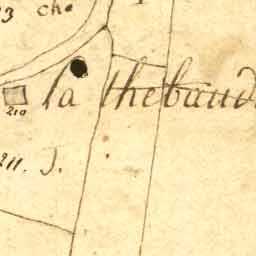 23 cho
la thebaud
210
211. J.